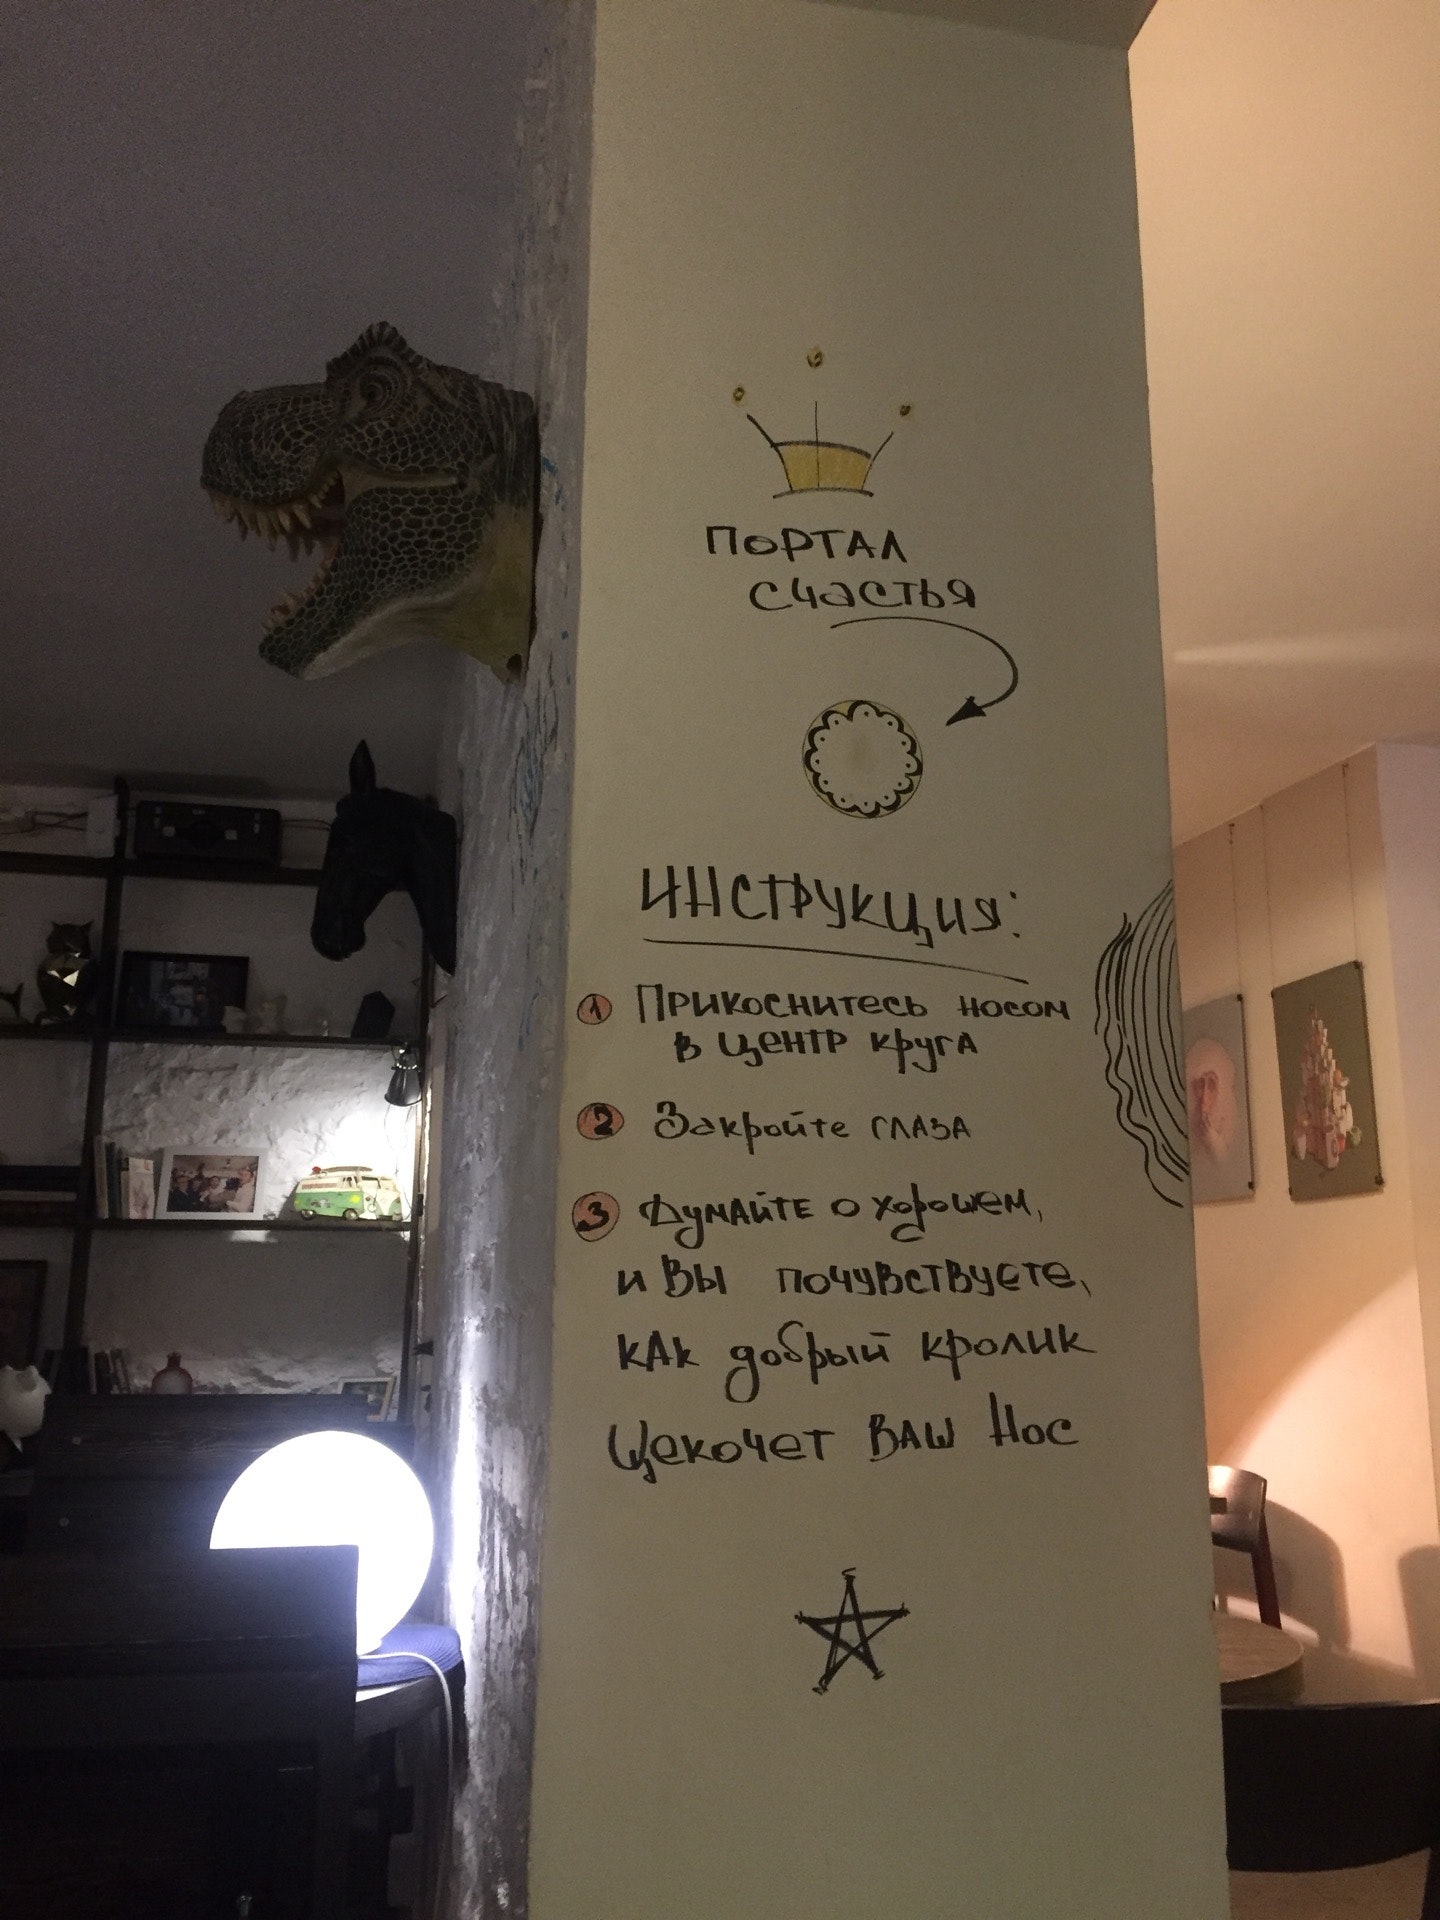 ПОРТАЛ
СЧАСТЬЯ
ИНСТРУКЦИЯ:
1 Прикоснитесь носом
в центр круга
2 Закройте глаза
3 Думайте о хорошем,
и вы почувствуете,
как добрый кролик
щекочет ваш нос